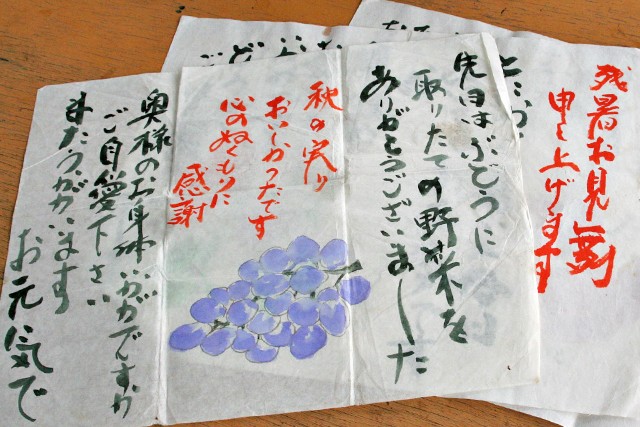 残暑お見舞
申し上げます
先日はぶどうに
取りたての野菜を
ありがとうございました
秋の実り
おいしかったです
心のぬくもりに
感謝
奥様のお身体いかがですか
ご自愛下さい
またうかがいます
お元気で